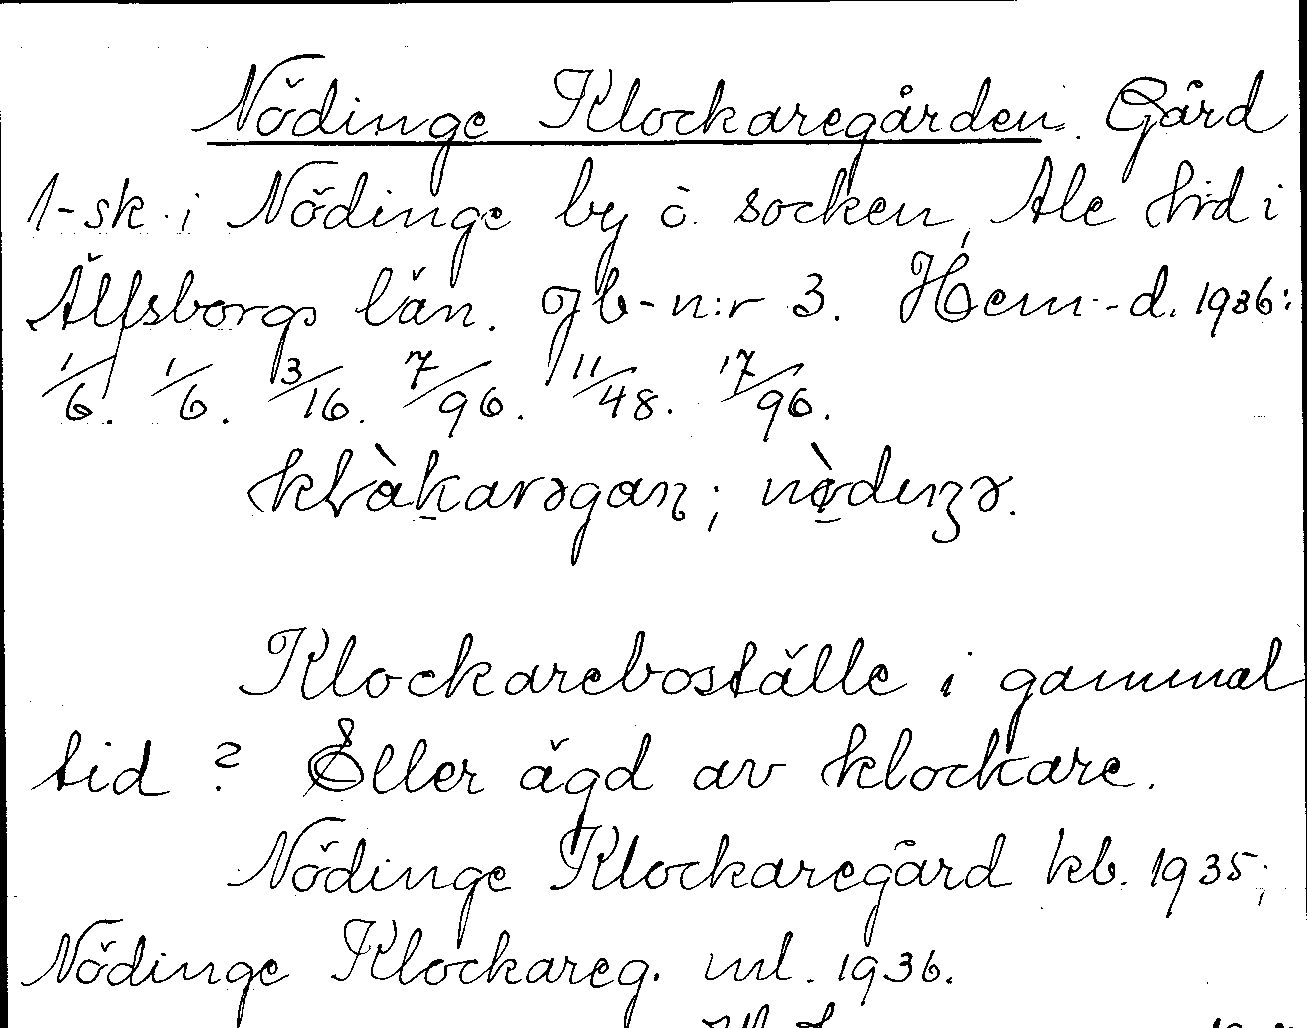 Nödinge Klockaregården. Gård
1-sk. i Nödinge by o. socken, Ale hrd i
Älfsborgs län. Jb-n:r 3. Hem.-d. 1936:
1/6. 1/6. 3/16. 7/96. 11/48. 17/96.
Klockareboställe i gammal
tid? Eller ägd av klockare.
Nödinge Klockaregård kb. 1935;
Nödinge Klockareg. ml. 1936.